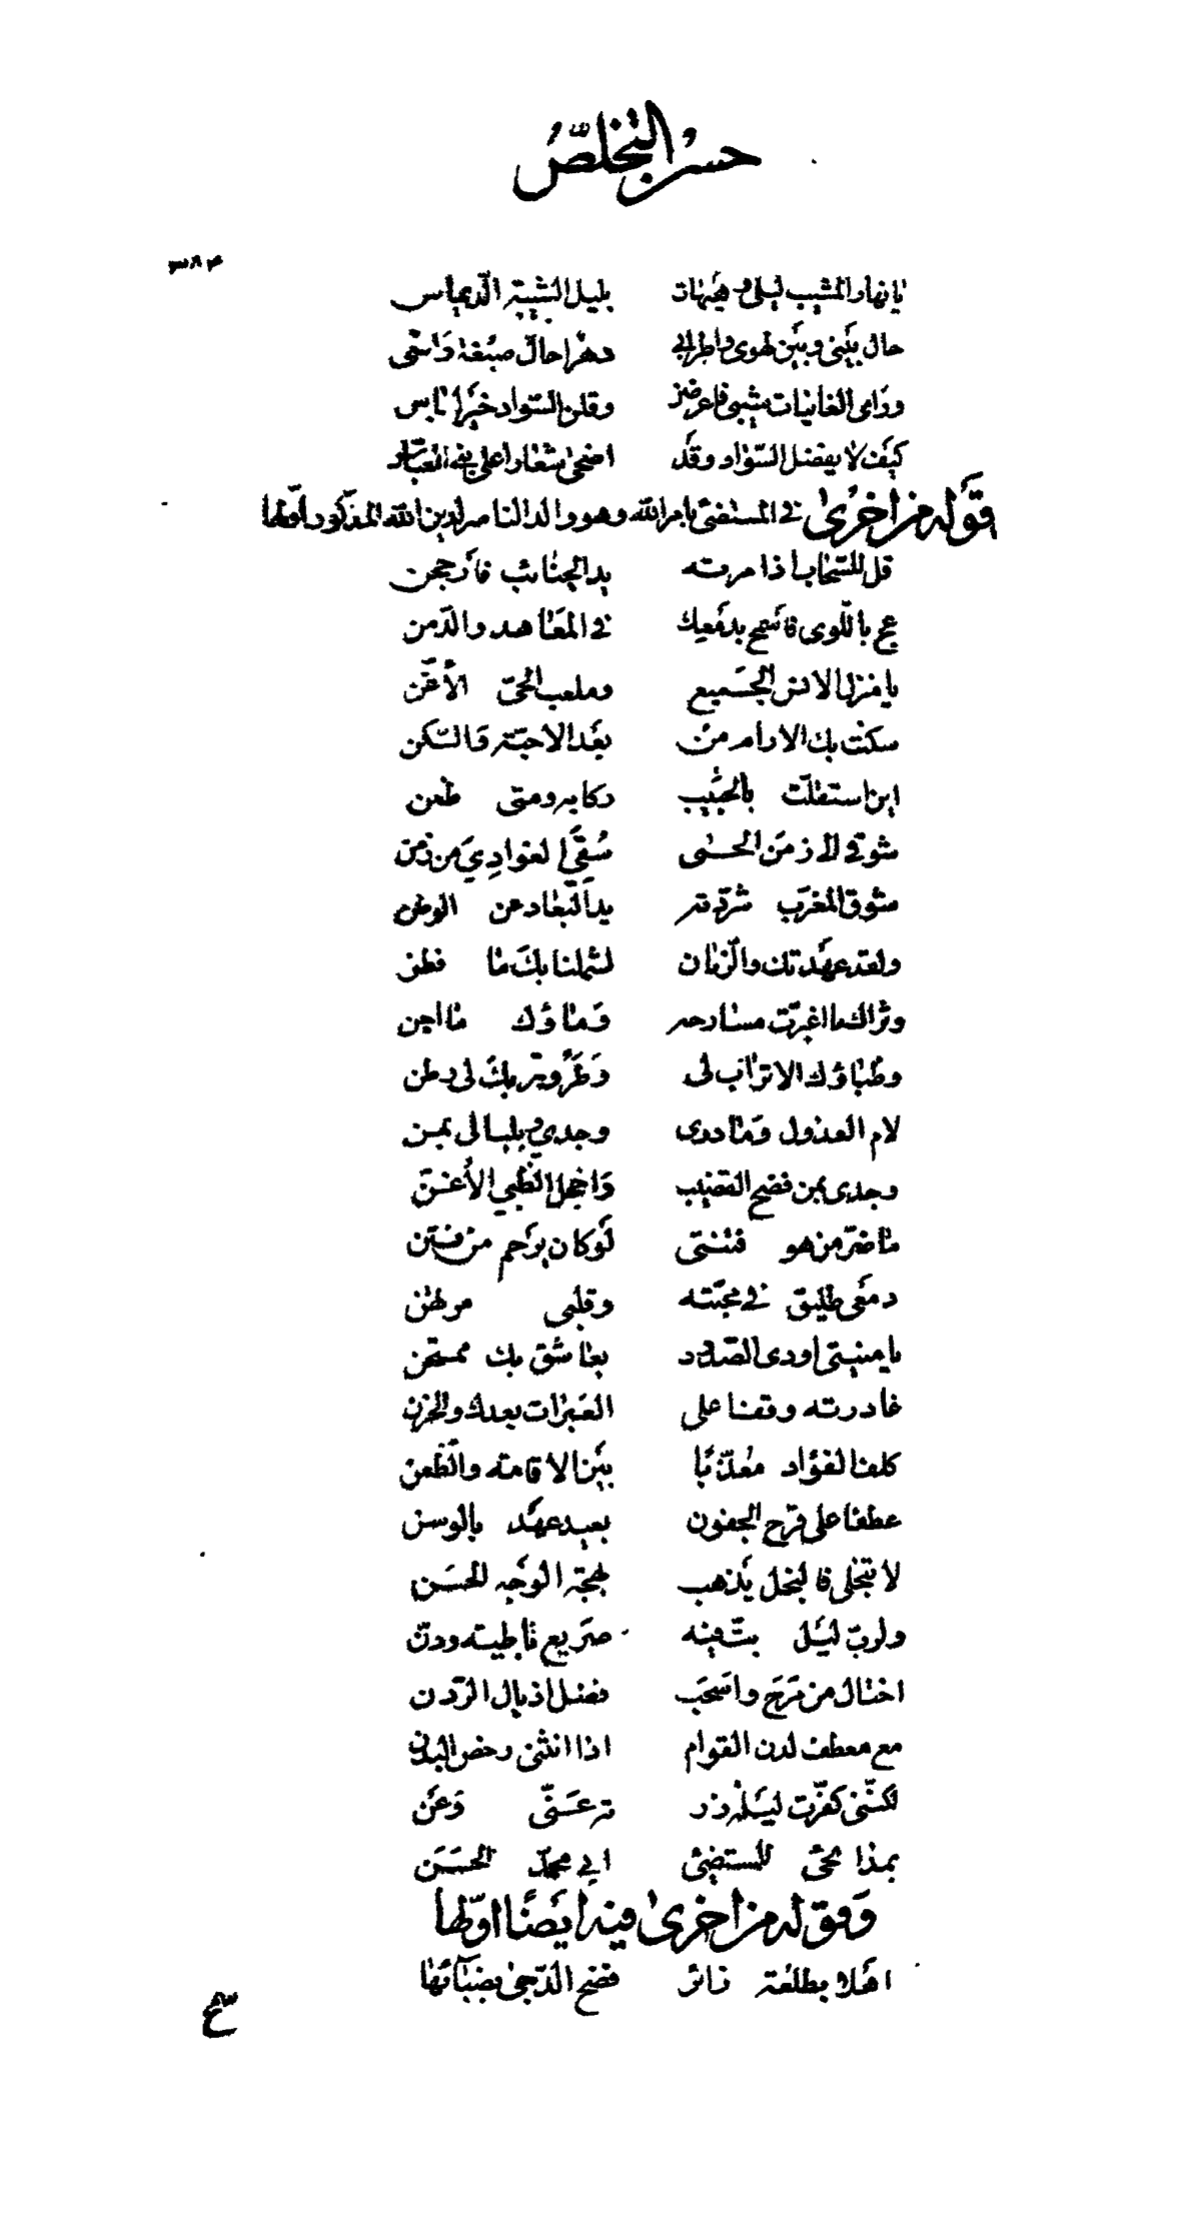 حسن التخلّص
٣٨٤
يا نهار المشيب ليلى وهيهات بليل الشبيبة الدّيماس
حال بيني وبين لهوى واطرابي دهر احال صبغة راسى
وراى الغانيات شيبى فاعرضن وقلن السّواد خير لباس
كيف لا يفضل السّواد وقد اضحى شعارا على بنى العبّاس
قوله من اخرى فى المستضئ بامر الله وهو والد الناصر لدين الله المذكور اولها
قل للسّحاب اذا مرته يد الجنائب فارجحن
عج باللّوى فاسمح بدمعك فى المعاهد والدّمن
يا منزل الانس الجميع وملعب الحىّ الأغن
سكنت بك الارام من بعد الاحبّة والسّكن
اين استقلّت بالحبيب ركابه ومتى ظعن
شوقى الى زمن الحمى سُقي الغوادِي من زمن
شوق المغرّب شرّدته يد البعاد عن الوطن
ولقد عهدتك والزّمان لشملنا بك ما فطن
وثراك ما اغبرّت مسارحه وماؤك ما اجن
وظباؤك الاتراب لى وطر وتربك لى وطن
لام العذول وما درى وجدي وبلبالى بمن
وجدى بمن فضح القضيب واخجل الظّبي الأغن
ما ضرّ من هو فتنتى لو كان يرحم من فتن
دمعى طليق فى محبّته وقلبى مرتهن
يا منيتى اودى الصّدود بعاشق بك ممتحن
غادرته وقفا على العبرات بعدك والحزن
كلف الفؤاد معذّبا بين الاقامة والظّعن
عطفا على قرح الجفون بعيد عهد بالوسن
لا تبخلى فالبخل يذهب بهجة الوجه الحسن
ولربّ ليل بتّ فيه صريع باطية ودن
اختال من مرح واسحب فضل اذيال الرّدن
مع معطف لدن القوام اذا انثنى رخص البدن
لكنّنى كفّرت ليلة زرته عنّى وعن
بمدائحى للمستضئ ابي محمّد الحسن
وقوله من اخرى فيه ايضًا اوّلها
اهلا بطلعة زائر فضح الدّجى بضيائها